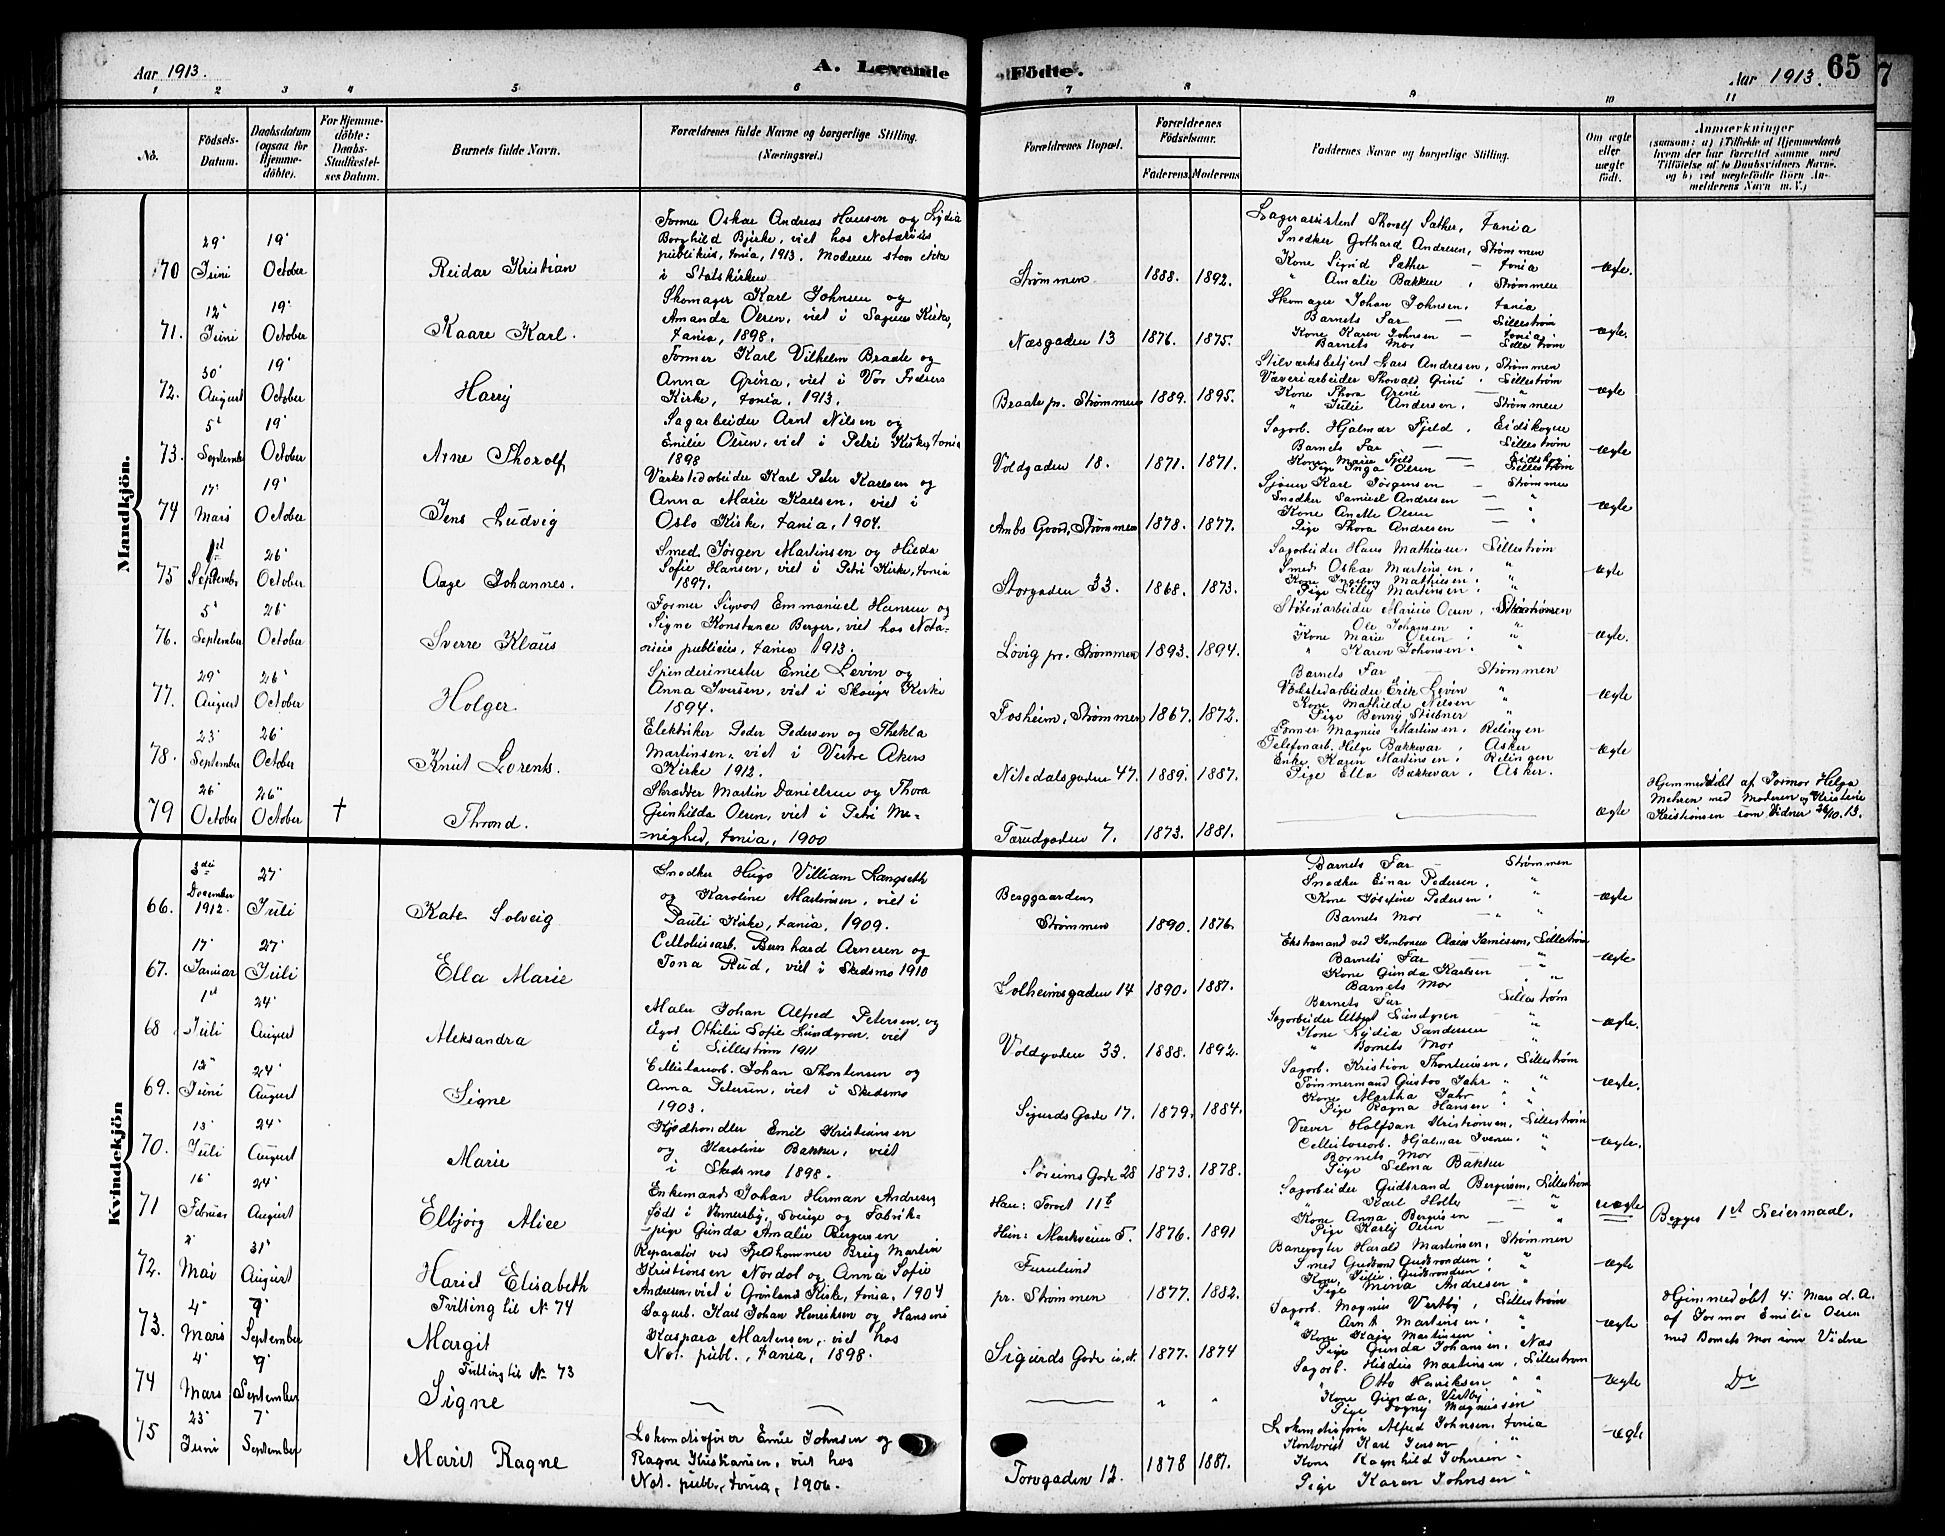 Aar 1913.
A. Levende
Födte.
Aar 1913.
65
7
1 2 3 4 5 6 7 8 9 10 11
No.
Födsels-
Datum.
Daabsdatum
(ogsaa for
Hjemme-
döbte).
For Hjemme-
döbte:
Daabs-
Stadfæstel-
ses Datum.
Barnets fulde Navn.
Forældrenes fulde Navne og borgerlige Stilling.
(Næringsvei.)
Forældrenes Bopæl.
Forældrenes
Födselsaar.
Faderens. Moderens.
Faddernes Navne og borgerlige Stilling.
Om ægte
eller
uægte
födt.
Anmærkninger
(saasom: a) i Tilfælde af Hjemmedaab
hvem der har forrettet samme med
Tilföielse af to Daabsvidners Navne.
og b) ved uægtefödte Börn An-
melderens Navn m. V.)
Mandkjön.
70 29' Juni 19' October
Reidar Kristian
Former Oskar Andreas Hansen og Lydia
Borghild Bjerke, viet hos Notarius
publicus, Xania, 1913. Moderen staar ikke
i Statskirken
Strømmen 1888. 1892.
Lagerassistent Thorolf Sæther, Xania
Snedker Gothard Andresen, Strømmen
Kone Sigrid Sæther — Xania
" Amalie Bakken, Strømmen
ægte.
71. 12' Juni 19' October
Kaare Karl.
Skomager Karl Johnsen og
Amanda Olsen, viet i Sagene Kirke,
Xania, 1898.
Næsgaden 13 1876. 1875.
Skomager Johan Johnsen, Xania
Barnets Far — Lillestrøm
Kone Karen Johnsen — Xania
Barnets Mor Lillestrøm
ægte.
72. 30' August 19' October
Harry
Former Karl Vilhelm Braate og
Anna Grina, viet i Vor Frelsers
Kirke, Xania, 1913.
Braate pr. Strømmen 1889. 1895.
Stilværksbetjent Lars Andresen, Strømmen
Væveriarbeider Thorvald Grini, Lillestrøm
Kone Thora Grini — "
" Julie Andersen, Strømmen
ægte
73. 5' September 19' October
Arne Thorolf
Sagarbeider Arnt Nilsen og
Emilie Olsen, viet i Petri Kirke, Xania
1898
Voldgaden 18. 1871. 1871.
Sagarb. Hjalmar Fjeld, Eidskogen
Barnets Far — Lillestrøm
Kone Marie Fjeld — Eidskog
Pige Inga Olsen — Lillestrøm
ægte
74 17' Mars 19' October
Jens Ludvig
Værkstedarbeider Karl Peter Karlsen og
Anna Marie Karlsen, viet i
Oslo Kirke, Xania, 1904.
Ambs Gaard, Strømmen 1878. 1877.
Karl Jørgensen — Strømmen
Snedker Samuel Andresen — "
Kone Anette Olsen — "
Pige Thora Andresen — "
ægte
75 1st September 26' October
Aage Johannes.
Smed Jørgen Martinsen og Hilda
Sofie Hansen, viet i Petri Kirke, Xania
1897.
Storgaden 33. 1868. 1873.
Sagarbeider Hans Mathisen, Lillestrøm
Smed Oskar Martinsen, "
Kone Ingeborg Mathisen, "
Pige Lilly Martinsen, "
ægte
76. 5' September 26' October
Sverre Klaus
Former Sigvort Emmanuel Hansen og
Signe Konstance Berger, viet hos Nota-
rius publicus, Xania 1913.
Løvig pr. Strømmen 1893. 1894.
Støberiarbeider Marius Olsen, Strømmen
" Ole Johansen, "
Kone Marie Olsen, "
" Karen Johansen, "
ægte.
77. 29' August 26' October
Holger.
Spinderimester Emil Levin og
Anna Iversen, viet i Skouger Kirke
1894.
Fosheim, Strømmen 1867. 1872.
Barnets Far — Strømmen
Værkstedarbeider Erik Levin "
Kone Mathilde Nilsen "
Pige Benny Stübner "
ægte
78. 23' September 26' October
Knut Lorents.
Elektriker Peder Pedersen og Thekla
Martinsen, viet i Vestre Akers
Kirke 1912.
Nitedalsgaden 47. 1889. 1887.
Former Magnus Martinsen, Relingen
Telefonarb. Helge Bakkevar, Asker
Enke Karen Martinsen, Relingen
Pige Ella Bakkevar, Asker.
ægte
79 26' October 26" October †
Thrond.
Skrædder Martin Danielsen og Thora
Gunhilda Olsen, viet i Petri Me-
nighed, Xania, 1900
Tærudgaden 7. 1873. 1881.
ægte
Hjemmedøbt af Jormor Helga
Mehren med Moderen og Kristine
Kristiansen som Vidner 26/10. 13.
Kvindekjön
66. 3die December 1912. 27' Juli
Kate Solveig
Snedker Hugo Villiam Langseth
og Karoline Martinsen, viet i
Pauli Kirke, Xania, 1909.
Berggaarden,
Strømmen 1890. 1876.
Barnets Far — Strømmen
Snedker Einar Pedersen, "
Kone Josefine Pedersen, "
Barnets Mor — "
ægte
67. 17' Januar 27' Juli
Ella Marie
Cellolusearb. Bernhard Arnesen og
Tona Rud, viet i Skedsmo 1910
Solheimsgaden 14 1890. 1887.
Ekstramand ved Jernbanen Lillestrøm
Barnets Far — "
Kone Gunda Karlsen — "
Barnets Mor "
ægte
68 1st Juli 24' August
Aleksandra
Maler Johan Alfred Petersen og
Agot Othilie Sofie Lundgren, viet
i Lillestrøm 1911
Voldgaden 33. 1888. 1892.
Barnets Far Lillestrøm
Sagarbeider Albert Lundgren — "
Kone Lydia Sandersen "
" Barnets Mor — "
ægte.
69. 12' Juni 24' August
Signe
Cellulosearb. Johan Thorstensen og
Anna Petersen, viet i Skedsmo
1903.
Sigurds Gade 17. 1879. 1884.
Sagarb. Kristian Thorstensen, Lillestrøm
Tømmermand Gustav Jahr " "
Kone Martha Jahr " "
Pige Ragna Hansen, "
ægte.
70. 13' Juli 24' August
Marie
Kjødhandler Emil Kristiansen
og Karoline Bakker, viet
i Skedsmo 1898.
Sørums Gade 28 1873. 1878.
Væver Halfdan Kristiansen, Lillestrøm
Cellulosearb. Hjalmar Iversen, "
Barnets Mor "
Pige Selma Bakker
ægte.
71 16' Februar 24' August
Elbjørg Alice
Enkemand Johan Herman Andresen,
født i Sverige og Fabrik-
pige Gunda Amalie Bergersen
Han: Torvet 11b
Hun: Markveien 5. 1876. 1891
Sagarbeider Gudbrand Bergersen, Lillestrøm
" Karl Holly — "
Kone Anna Bergersen — "
Pige Karly Olsen "
uægte
Begges 1st Leiermaal.
72. 2' Mai 31' August
Hariet Elisabeth
Reparatør ved Fjeldhammer Brug Martin
Kristiansen Nordal og Anna Sofie
Andersen, viet i Grønland Kirke, Xania, 1904
Furulund
pr. Strømmen 1877. 1882.
Banevogter Harald Martinsen, Strømmen
Smed Gudbrand Gudbrandsen, "
Kone Julie Gudbrandsen, "
Pige Mina Andresen "
ægte
73. 4' Mars 7' September
Tvilling til No 74
Margit
Sagarb. Karl Johan Henriksen og Hansine
Kaspara Martinsen, viet hos
Not. publ., Xania, 1898.
Sigurds Gade 1877. 1874
Sagarb. Magnus Vestby, Lillestrøm
" Arnt Martinsen, "
Kone Kaja Martinsen "
Pige Gunda Johansen, Næs
ægte
Hjemmedøbt 4' Mars d. A.
af Jormor Emilie Olsen
med Barnets Mor som Vidne
74 4' Mars 7' September
Tvilling til No 73
Signe
Sagarb. Hisdius Martinsen, Lillestrøm
" Otto Henriksen " "
Kone Gunda Vestby, "
Pige Fogny Magnussen "
ægte
Do
75 23' Juni 7' September
Marit Ragne
Lokomotivfører Emil Johnsen og
Ragna Kristiansen, viet hos
Not. publ., Xania, 1906.
Torvgaden 12. 1878 1887.
Lokomotivfører Alfred Johnsen, Xania
Kontorist Karl Jensen "
Kone Ragnhild Johnsen "
Pige Karen Johnsen "
ægte